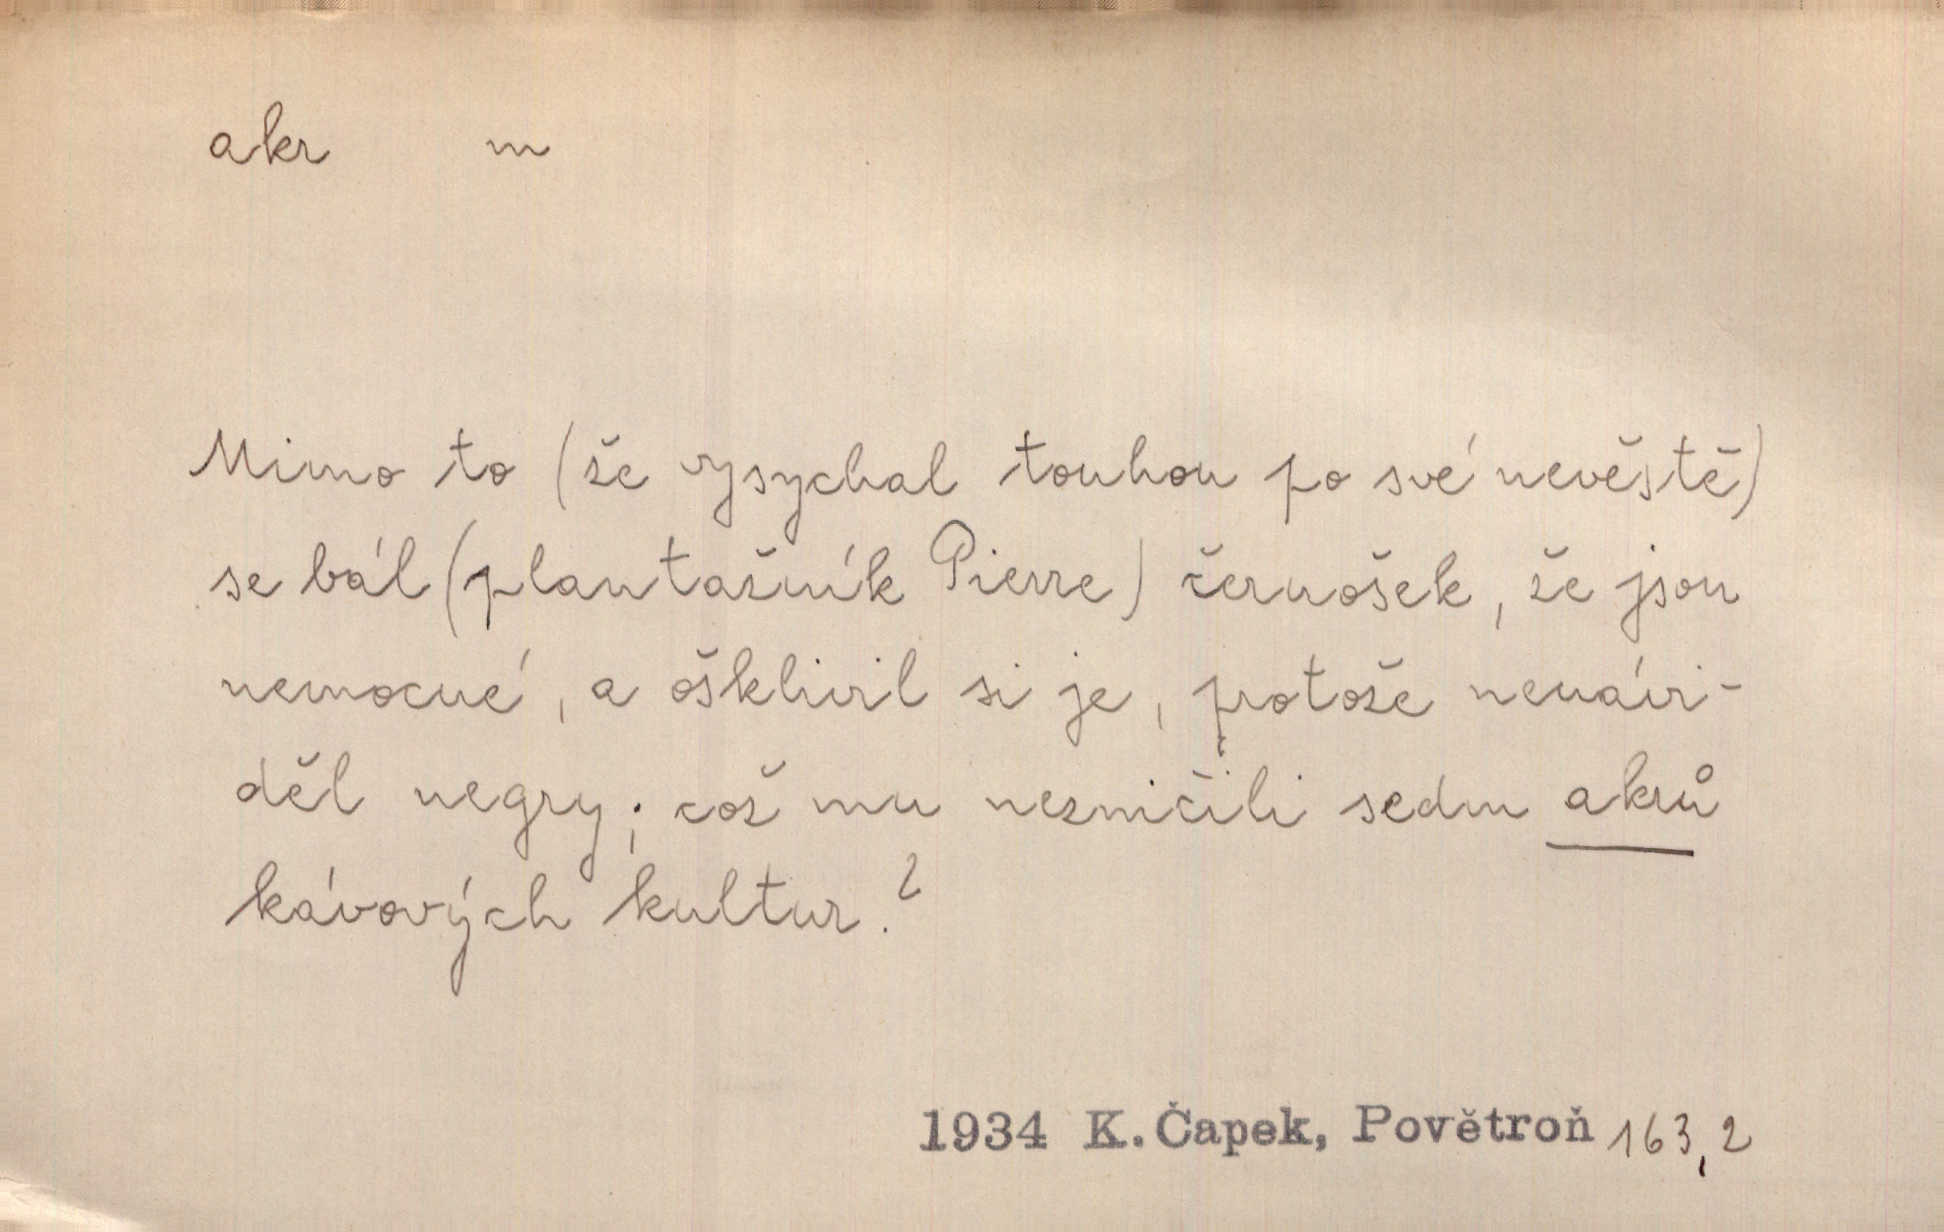 akr m
Mimo to (že vysychal touhou po své nevěstě)
se bál (plantažník Pierre) černošek, že jsou
nemocné, a ošklivil si je, protože nenávi-
děl negry; což mu nezničili sedm akrů
kávových kultur?
1934 K. Čapek, Povětroň 163,2